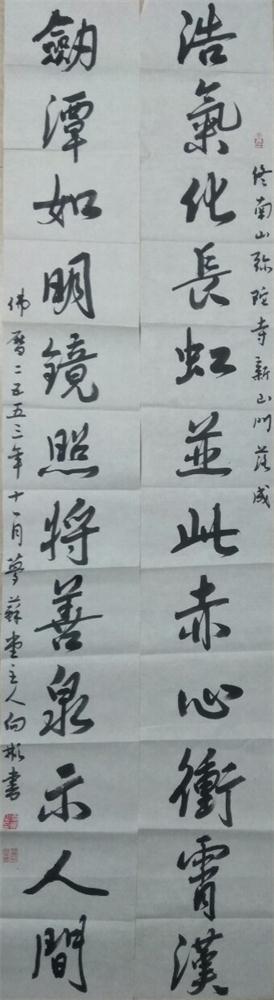 终南山弥陀寺新山门落成
浩氣化長虹並此赤心衝霄漢
劒潭如明鏡照將善泉示人間
佛曆二五五三年十一月夢蘇堂主人向彬書